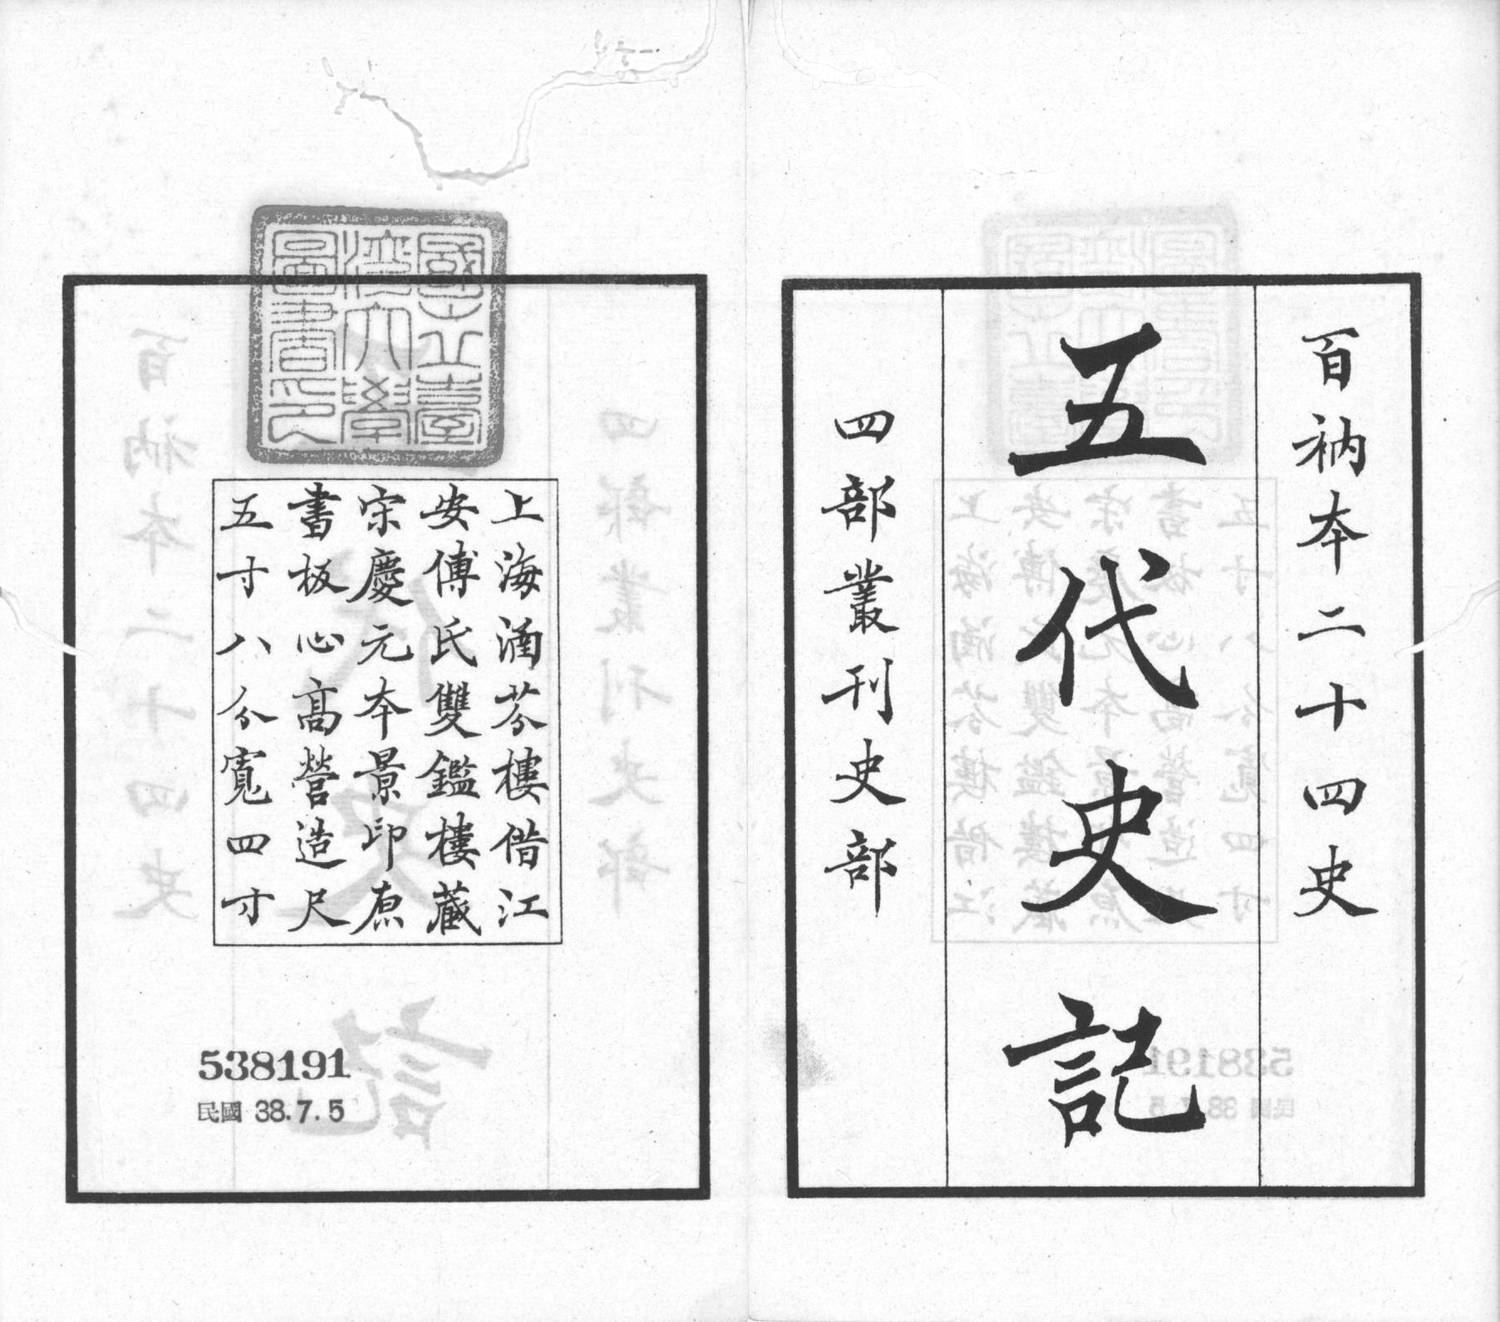 百衲本二十四史
五代史記
四部叢刊史部
國立臺
灣大學
圖書印
上海涵芬樓借江
安傅氏雙鑑樓藏
宋慶元本景印原
書板心高營造尺
五寸八分寬四寸
538191
民國 38.7.5